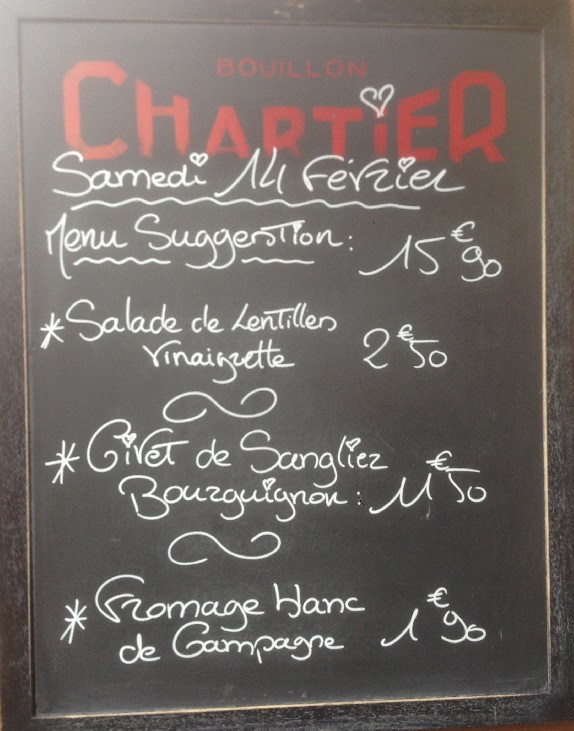 BOUILLON
CHARTIER
Samedi 14 Février
Menu Suggestion : 15€90
* Salade de Lentilles
Vinaigrette 2€50
* Civet de Sanglier
Bourguignon : 11€50
* Fromage blanc
de Campagne 1€90